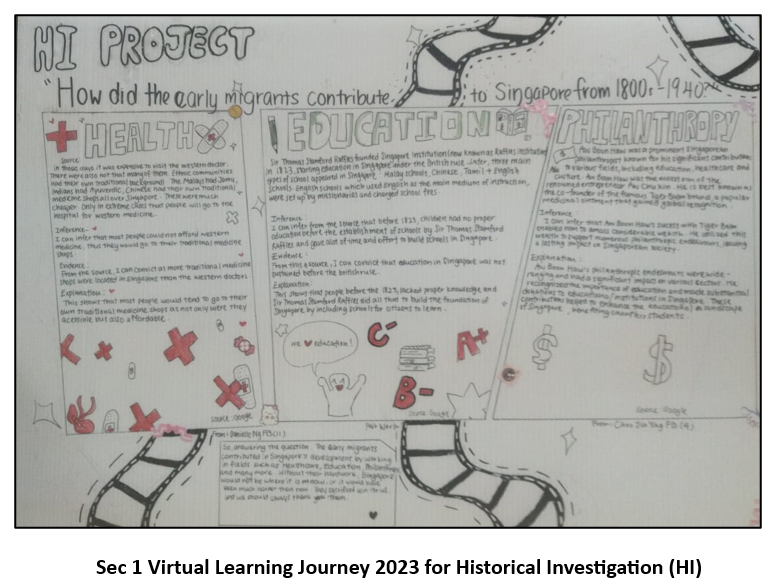 HI PROJECT
"How did the early migrants contribute to Singapore from 1800s-1940?"
HEALTH
Source:
In those days it was expensive to visit the western doctor.
There were also not that many of them. Ethnic communities
had their own traditional background. The Malays had Jamu,
Indians had Ayurvedic, Chinese had their own Traditional
medicine shops all over Singapore. These were much
cheaper. Only in extreme cases that people will go to the
hospital for western medicine.
Inference
I can infer that most people could not afford western
medicine. Thus they would go to their traditional medicine
shops.
Evidence:
From the source, I can convict as more traditional medicine
shops were located in Singapore than the western doctors
Explanation:
This shows that most people would tend to go to their
own traditional medicine shops as not only were they
accesible but also affordable.
Source: Google
EDUCATION
Sir Thomas Stamford Raffles founded Singapore Institution (now known as Raffles Institution)
in 1823, starting education in Singapore under the British rule. Later, three main
types of school appeared in Singapore: Malay schools, Chinese, Tamil + English
schools. English schools which used English as the main medium of instruction,
were set up by missionaries and charged school fees.
Inference
I can infer from the source that before 1823, children had no proper
education before the establishment of schools by Sir Thomas Stamford
Raffles and gave alot of time and effort to build schools in Singapore.
Evidence:
From this source, I can convict that education in Singapore was not
before the british rule.
Explanation
This shows that people before the 1823, lacked proper knowledge and
Sir Thomas Stamford Raffles did all that to build the foundation of
Singapore by including schools for citizens to learn.
we ♥ education!
C-
A+
B-
Source: Google
PHILANTHROPY
Aw Boon Haw was a prominent Singaporean
philanthropist known for his significant contributions
to various fields, including education, healthcare and
culture. Aw Boon Haw was the eldest son of the
renowned entrepreneur Aw Chu Kin. He is best known as
the co-founder of the famous Tiger Balm brand, a popular
medicinal ointment that gained global recognition.
Inference:
I can infer that Aw Boon Haw's success with Tiger Balm
enabled him to amass considerable wealth. He utilised this
wealth to support numerous philanthropic endeavours, leaving
a lasting impact in Singaporean society.
Explanation:
Aw Boon Haw's philanthropic endeavours were wide-
ranging and had a significant impact on various sectors. He
recognised the importance of education and made substantial
donations to educational institutions in Singapore. These
contributions helped to enhance the educational landscape
of Singapore, benefiting countless students.
$
$
Source: Google
From: Danielle Ng
In answering the question, the early migrants
contributed in Singapore's development by working
in fields such as Healthcare, Education, Philanthropy
and many more. Without their hardwork, Singapore
would not be where it is
and we should always thank you them.
Sec 1 Virtual Learning Journey 2023 for Historical Investigation (HI)